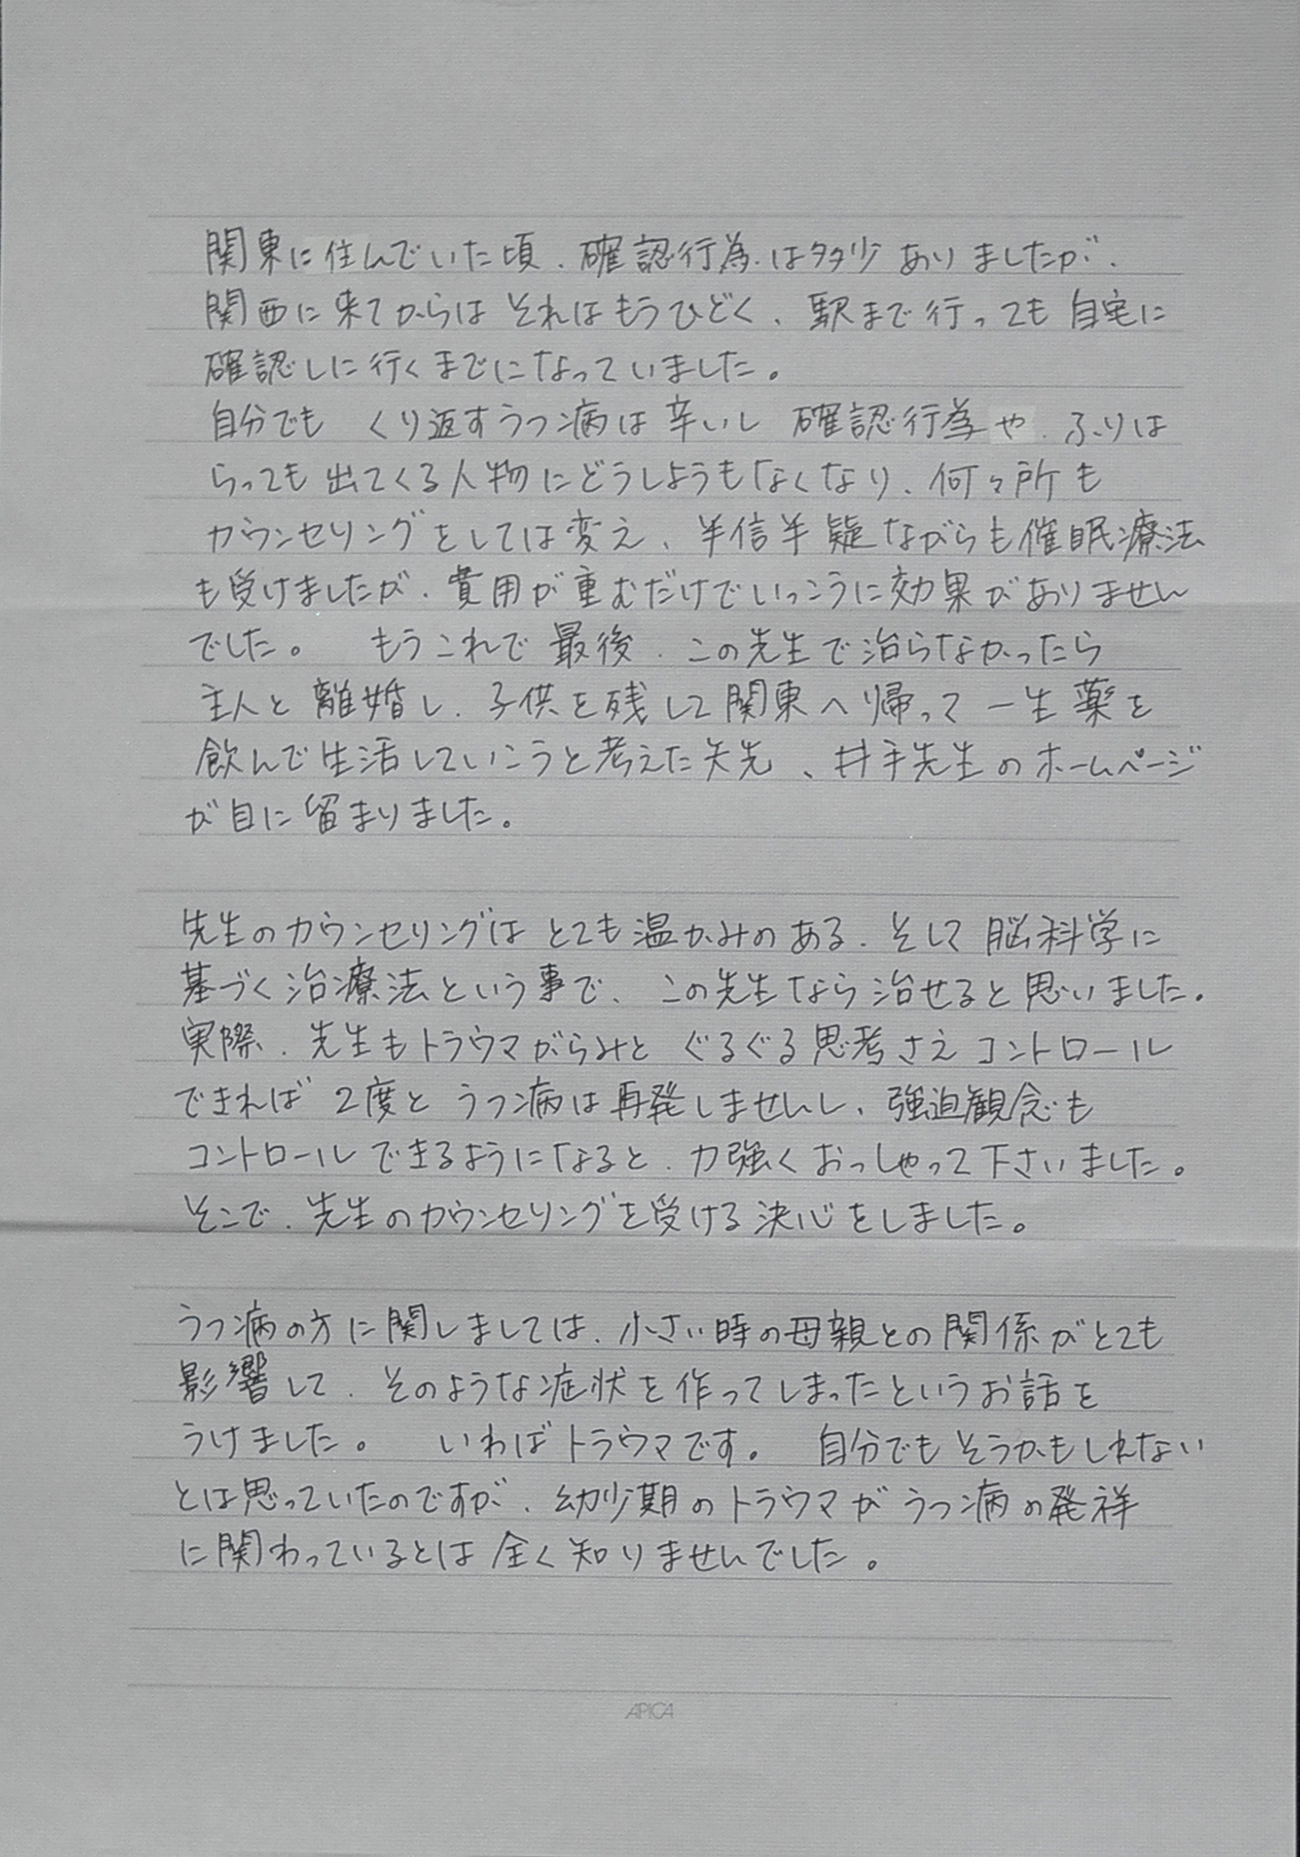 関東に住んでいた頃、確認行為は多少ありましたが、
関西に来てからはそれはもうひどく、駅まで行っても自宅に
確認しに行くまでになっていました。
自分でも くり返すうつ病は辛いし 確認行為や、ふりは
らっても出てくる人物にどうしようもなくなり、何ヶ所も
カウンセリングをしては変え、半信半疑ながらも催眠療法
も受けましたが、費用が重むだけでいっこうに効果がありません
でした。 もうこれで最後、この先生で治らなかったら
主人と離婚し、子供を残して関東へ帰って一生薬を
飲んで生活していこうと考えた矢先、井手先生のホームページ
が目に留まりました。
先生のカウンセリングはとても温かみのある、そして脳科学に
基づく治療法という事で、この先生なら治せると思いました。
実際、先生もトラウマがらみと ぐるぐる思考さえコントロール
できれば 2度と うつ病は再発しませんし、強迫観念も
コントロールできるようになると、力強くおっしゃって下さいました。
そこで、先生のカウンセリングを受ける決心をしました。
うつ病の方に関しましては、小さい時の母親との関係がとても
影響して、そのような症状を作ってしまったというお話を
うけました。 いわばトラウマです。 自分でもそうかもしれない
とは思っていたのですが、幼少期のトラウマがうつ病の発祥
に関わっているとは全く知りませんでした。
APICA